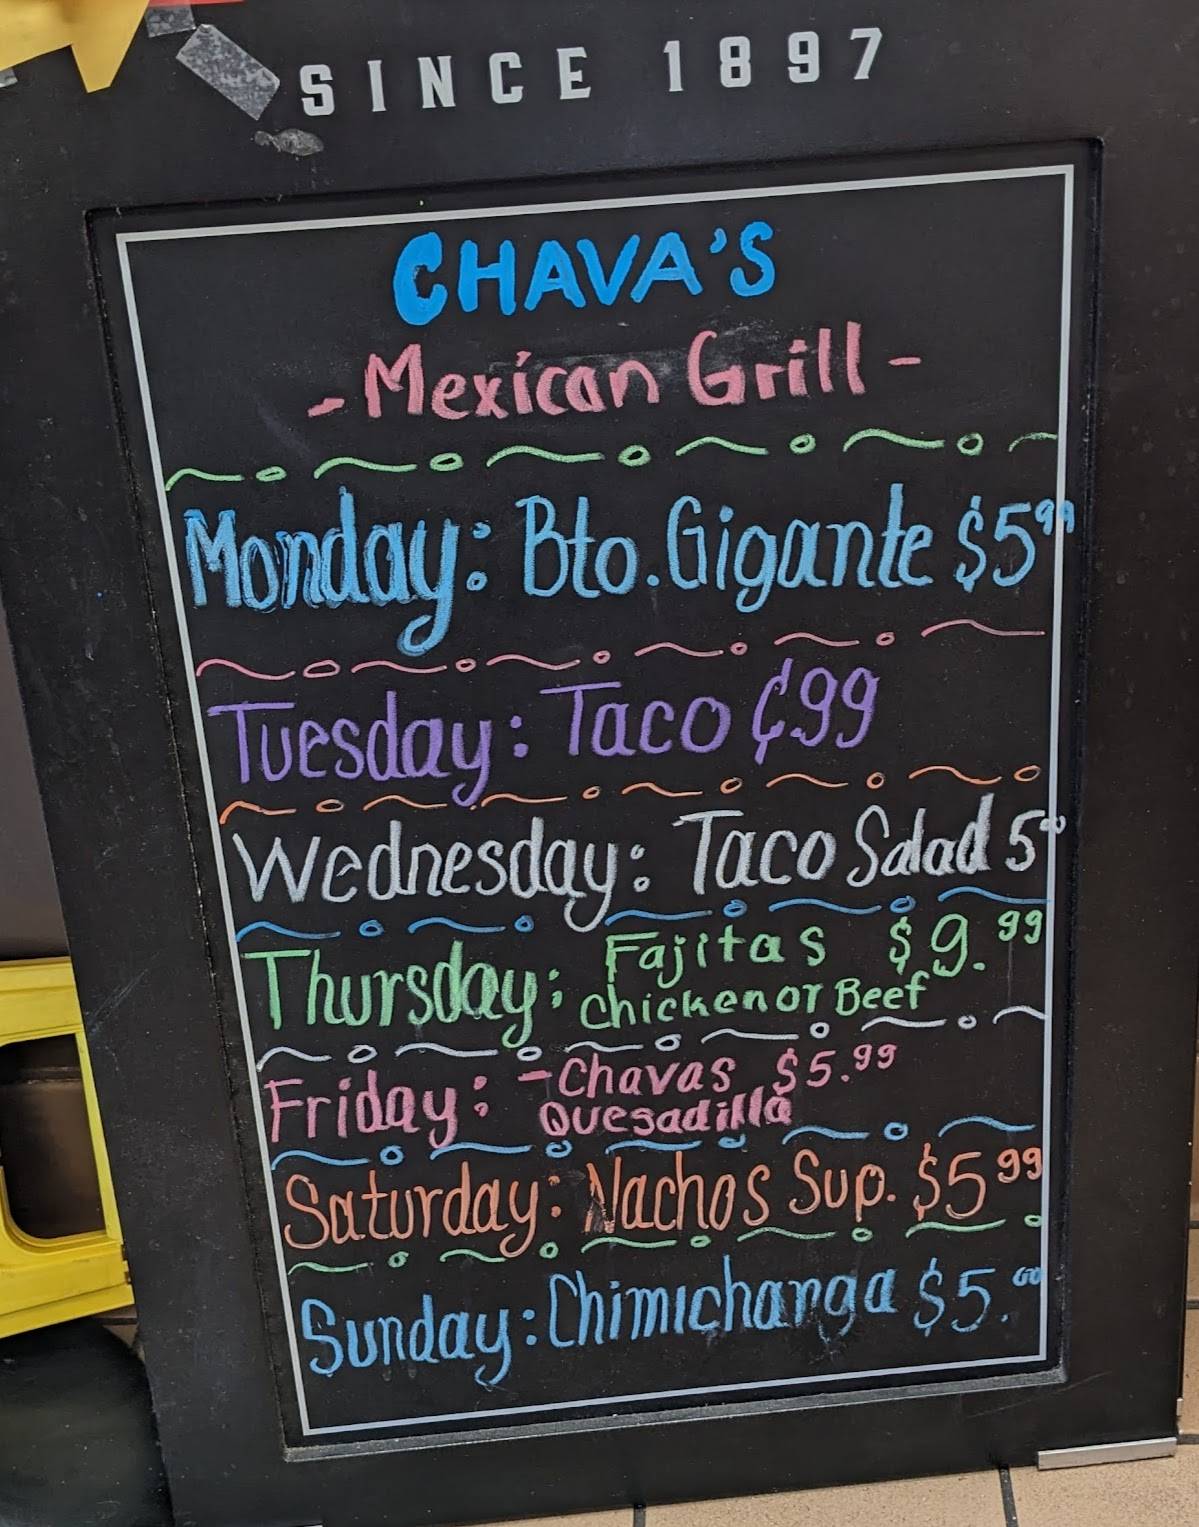 SINCE 1897
CHAVA'S
- Mexican Grill -
Monday: Bto. Gigante $5 99
Tuesday: Taco ¢99
Wednesday: Taco Salad 5 00
Thursday: Fajitas $9.99
Chicken or Beef
Friday: - Chavas $5.99
Quesadilla
Saturday: Nachos Sup. $5 99
Sunday: Chimichanga $5.00